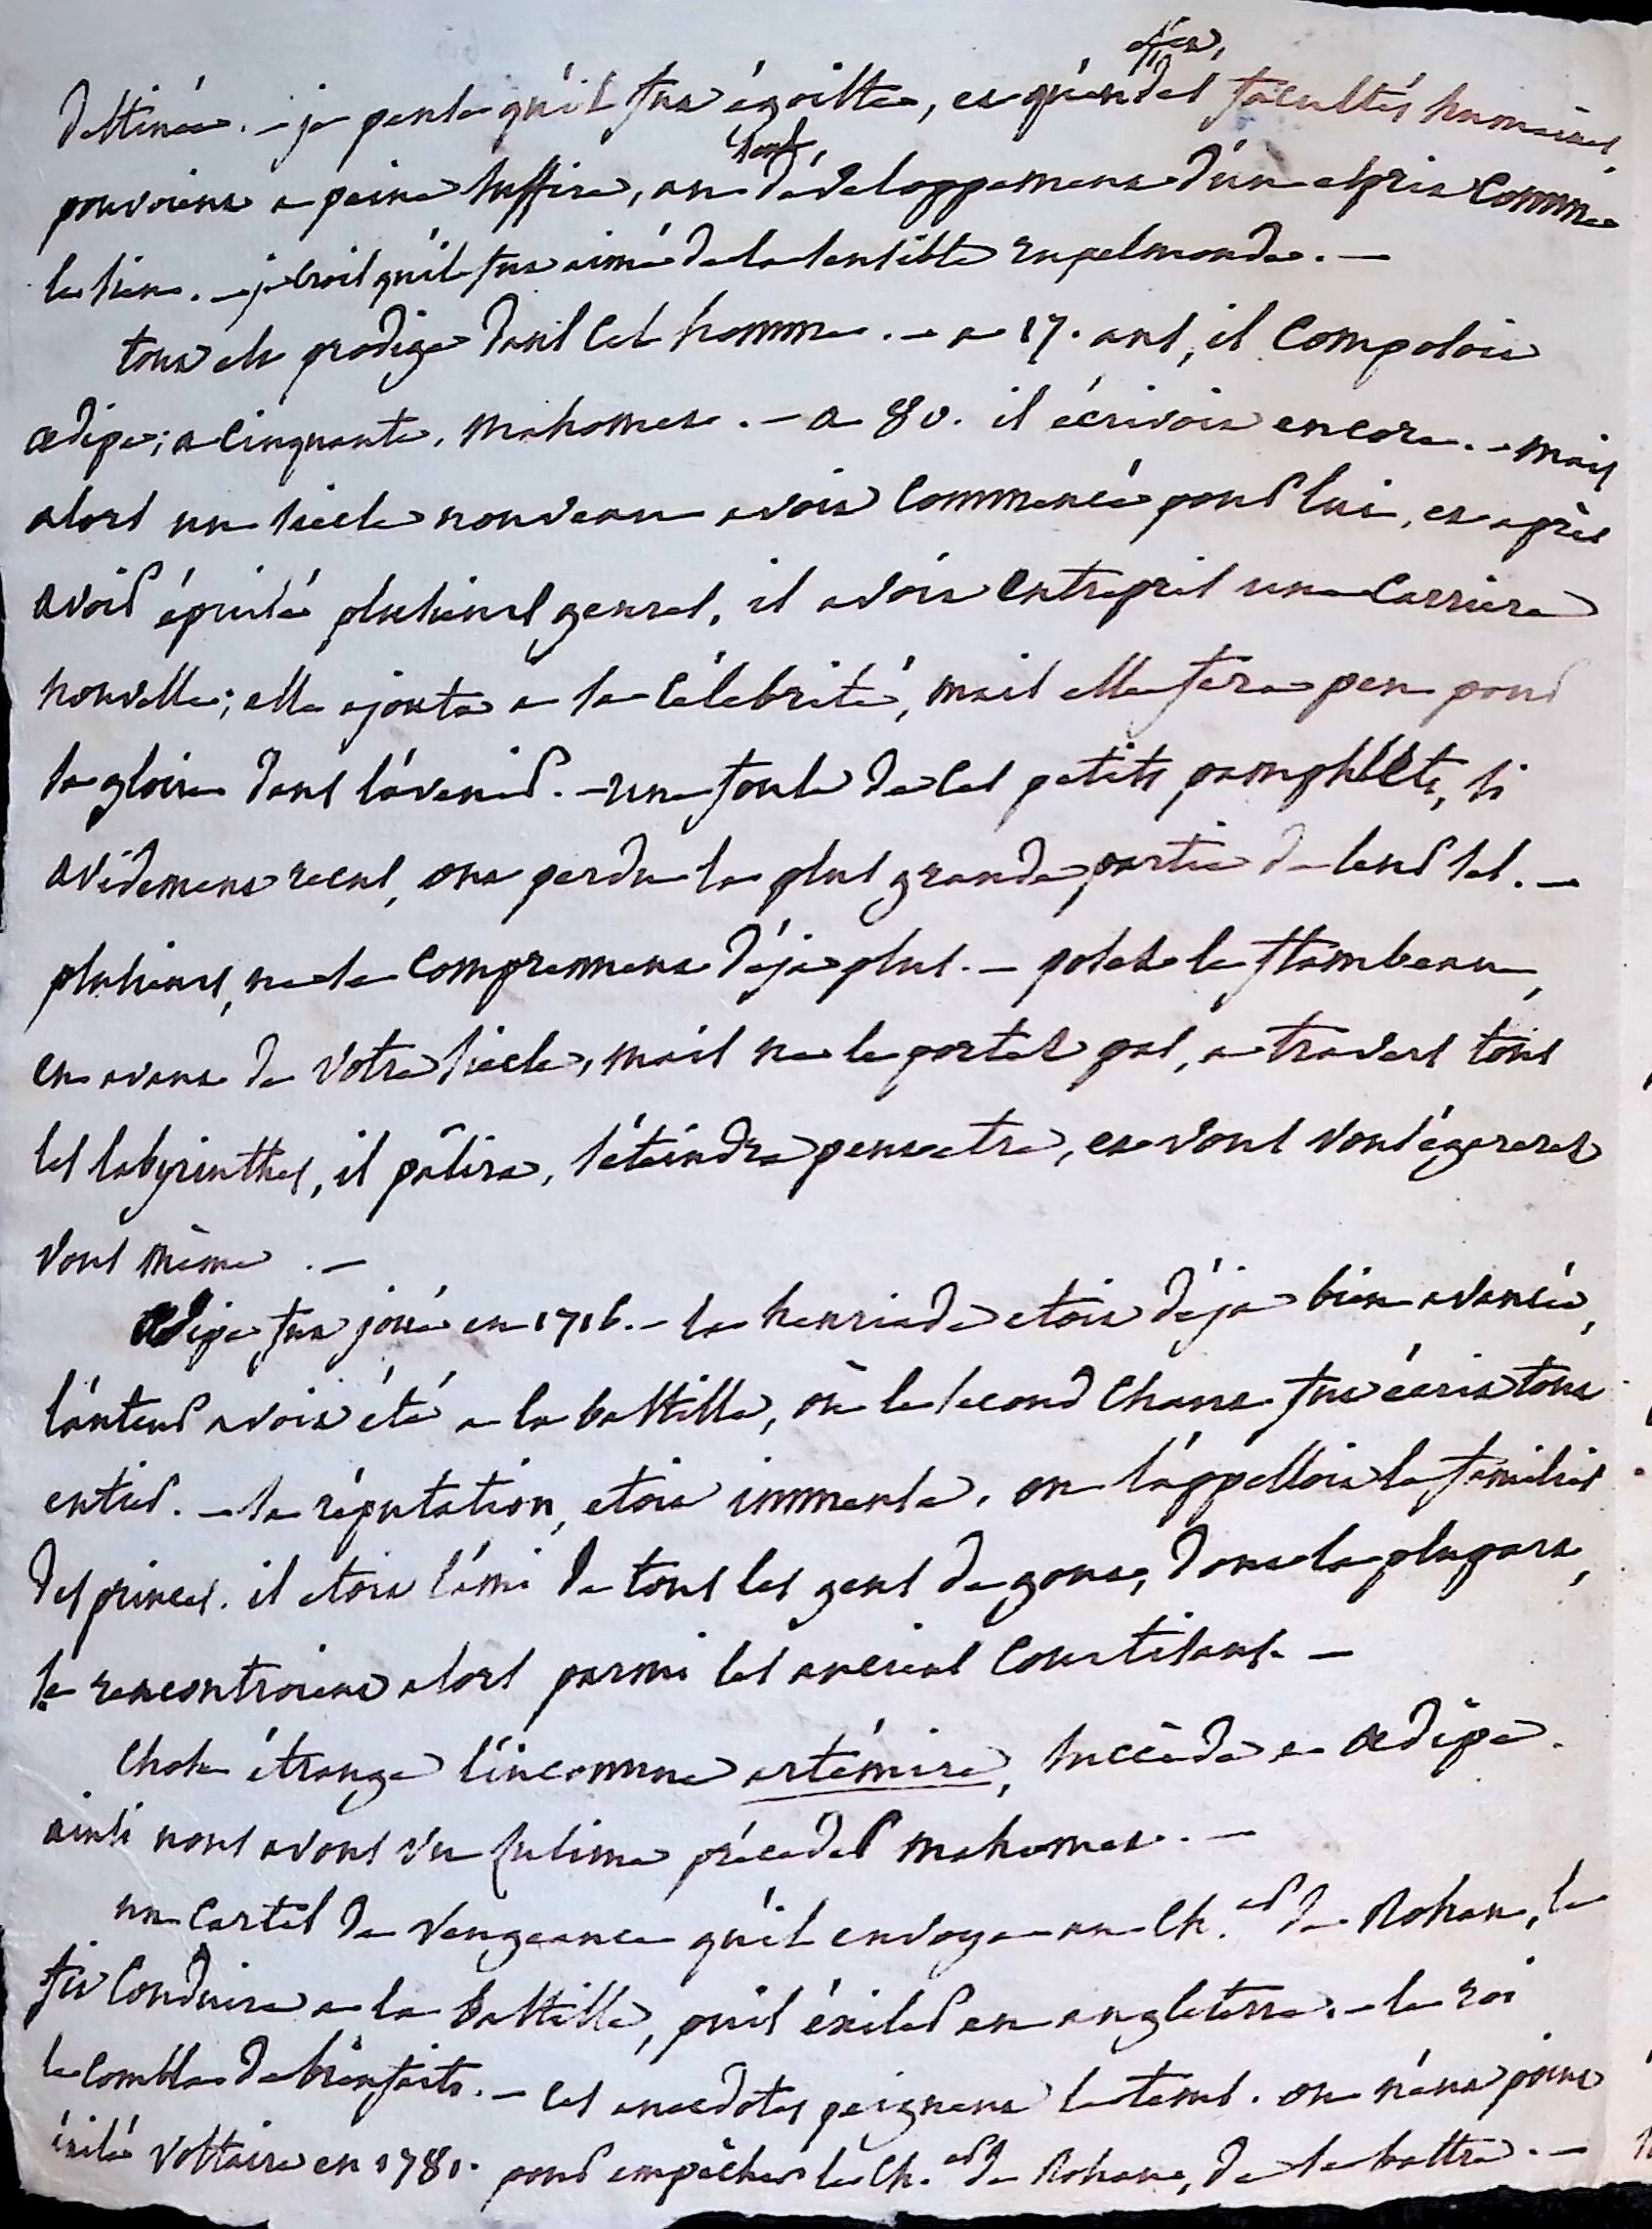 destinée. – je pense qu'il fut égoïste, et qu'en effet, des facultés humaines,
pouvoient a peine suffire, au seul, développement d'un esprit comme
le sien. – je crois qu'il fut aimé de la sensible rupelmonde. –
tout est prodige dans cet homme. – a 17. ans, il composoit
œdipe; a cinquante, mahomet. – a 80. il écrivoit encore. – mais
alors un siècle nouveau avoit commencé pour lui, et après
avoir épuisé plusieurs genres, il avoit entrepris une carrière
nouvelle; elle ajouta a sa célébrité, mais elle fera peu pour
sa gloire dans l'avenir. – une foule de ces petits pamphlets, si
avidement reçus, ont perdu la plus grande partie de leur sel. –
plusieurs, ne se comprennent déja plus. – posez le flambeau,
en avant de votre siècle, mais ne le portez pas, a travers tous
les labyrinthes, il pâlira, s'éteindra peut etre, et vous vous égarerez
vous même. –
Œdipe fut joué en 1716. – la henriade etoit déja bien avancée,
l'auteur avoit été a la bastille, où le second chant fut écrit tout
entier. – sa réputation, etoit immense, on l'appelloit le familier
des princes. il etoit l'ami de tous les gens de gout, dont la plupart,
se rencontroient alors parmi les anciens courtisans. –
chose étrange l'inconnue artémire, succède a œdipe.
ainsi nous avons vu zulime précéder mahomet. –
un cartel de vengeance qu'il envoya au ch.er de Rohan, le
fit conduire a la bastille, puis éxiler en angleterre. – le roi
le combla de bienfaits. – ces anecdotes peignent le tems. on n'eut point
éxilé voltaire en 1781. pour empêcher le ch.er de Rohan, de se battre. –